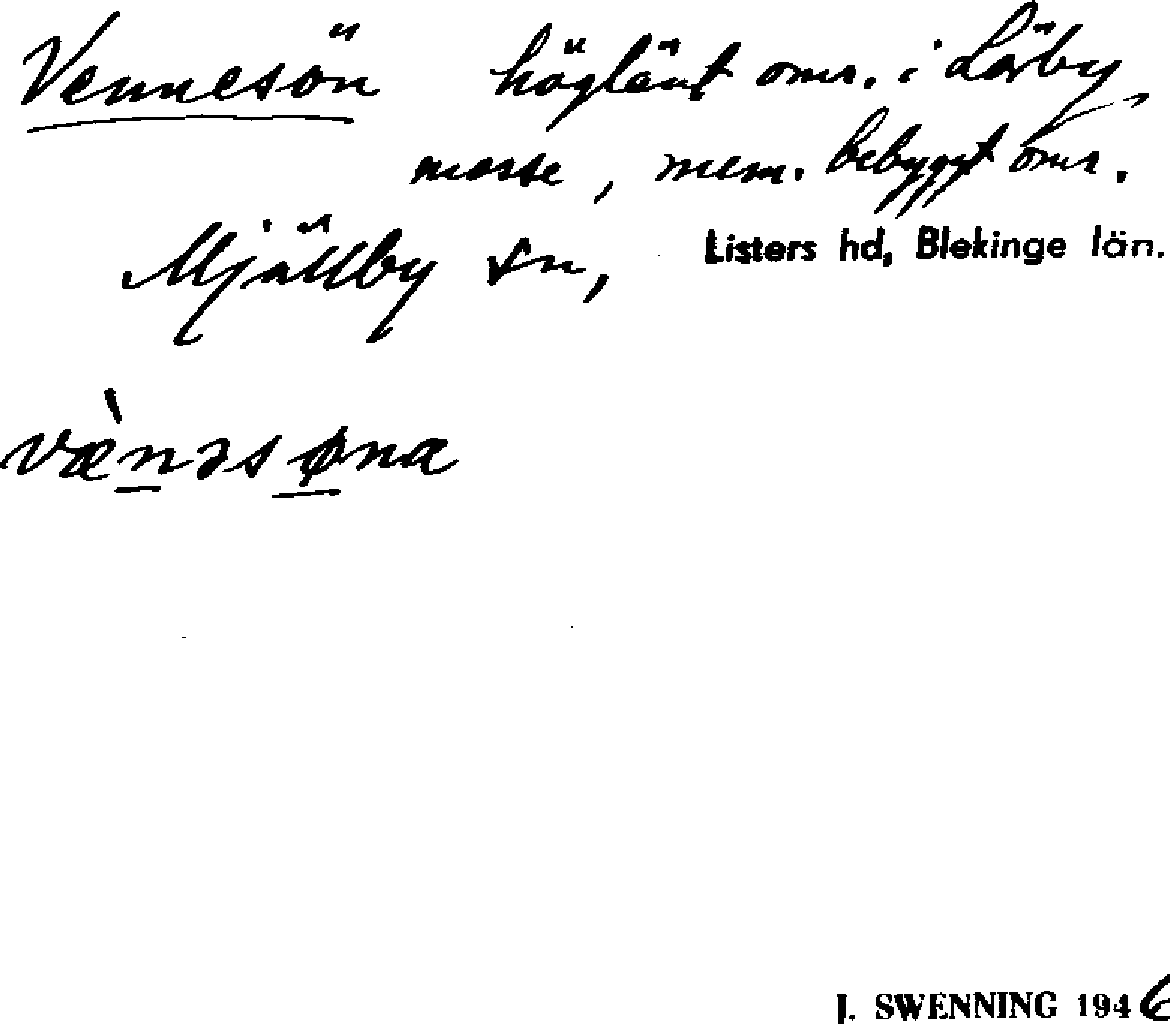 Vennesön höglänt omr. i Lörby
mosse, mem. bebyggt omr.
Mjällby sn, Listers hd, Blekinge län.
vǽnəsøna
J. SWENNING 1946